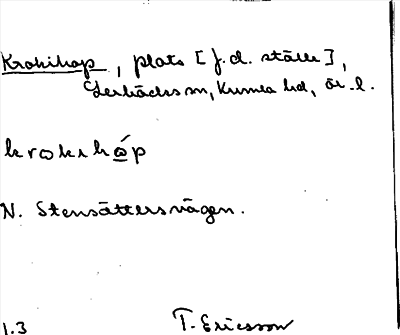 Krokikap, plats [f.d. ställe],
Lerbäcks sn, Kumla hd, ör. l.
krokıkǻp
N. Stensättersvägen.
1.3 T. Ericsson